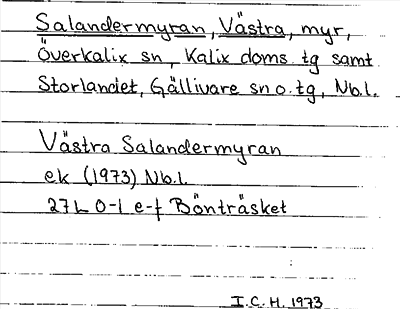 Salandermyran, Västra, myr,
Överkalix sn, Kalix doms. tg samt
Storlandet, Gällivare sn o. tg, Nb.l.
Västra Salandermyran
ek (1973) Nb.l.
27L 0-1 e-f Bönträsket
I.C.H. 1973